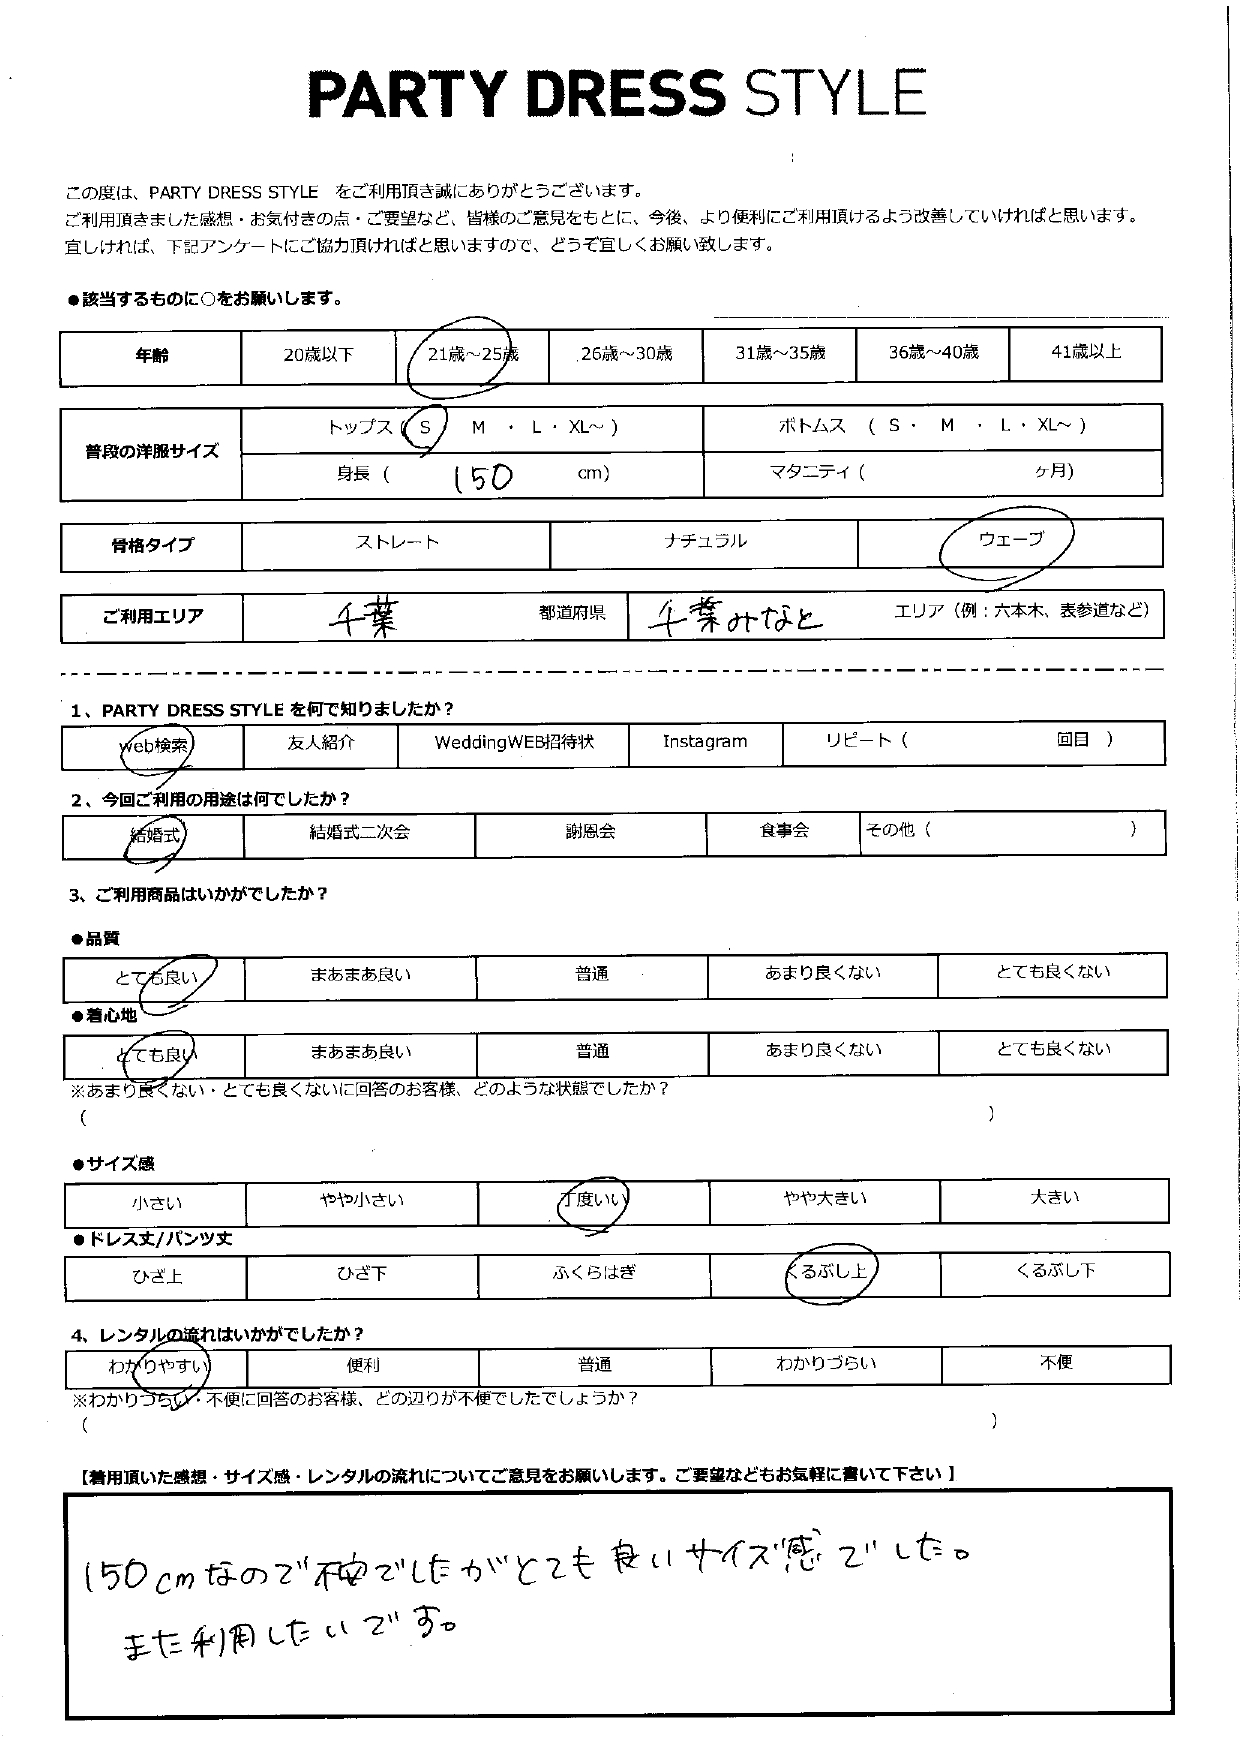 PARTY DRESS STYLE
この度は、PARTY DRESS STYLE をご利用頂き誠にありがとうございます。
ご利用頂きました感想・お気付きの点・ご要望など、皆様のご意見をもとに、今後、より便利にご利用頂けるよう改善していければと思います。
宜しければ、下記アンケートにご協力頂ければと思いますので、どうぞ宜しくお願い致します。
●該当するものに○をお願いします。
年齢 20歳以下 21歳～25歳 26歳～30歳 31歳～35歳 36歳～40歳 41歳以上
普段の洋服サイズ トップス ( S M ・ L ・ XL～ ) ボトムス ( S ・ M ・ L ・ XL～ )
身長 ( 150 cm) マタニティ ( ヶ月)
骨格タイプ ストレート ナチュラル ウェーブ
ご利用エリア 千葉 都道府県 千葉みなと エリア（例：六本木、表参道など）
1、PARTY DRESS STYLE を何で知りましたか？
web検索 友人紹介 WeddingWEB招待状 Instagram リピート ( 回目 )
2、今回ご利用の用途は何でしたか？
結婚式 結婚式二次会 謝恩会 食事会 その他 ( )
3、ご利用商品はいかがでしたか？
●品質
とても良い まあまあ良い 普通 あまり良くない とても良くない
●着心地
とても良い まあまあ良い 普通 あまり良くない とても良くない
※あまり良くない・とても良くないに回答のお客様、どのような状態でしたか？
( )
●サイズ感
小さい やや小さい 丁度いい やや大きい 大きい
●ドレス丈/パンツ丈
ひざ上 ひざ下 ふくらはぎ くるぶし上 くるぶし下
4、レンタルの流れはいかがでしたか？
わかりやすい 便利 普通 わかりづらい 不便
※わかりづらい・不便に回答のお客様、どの辺りが不便でしたでしょうか？
( )
【着用頂いた感想・サイズ感・レンタルの流れについてご意見をお願いします。ご要望などもお気軽に書いて下さい】
150cmなので不安でしたがとても良いサイズ感でした。
また利用したいです。